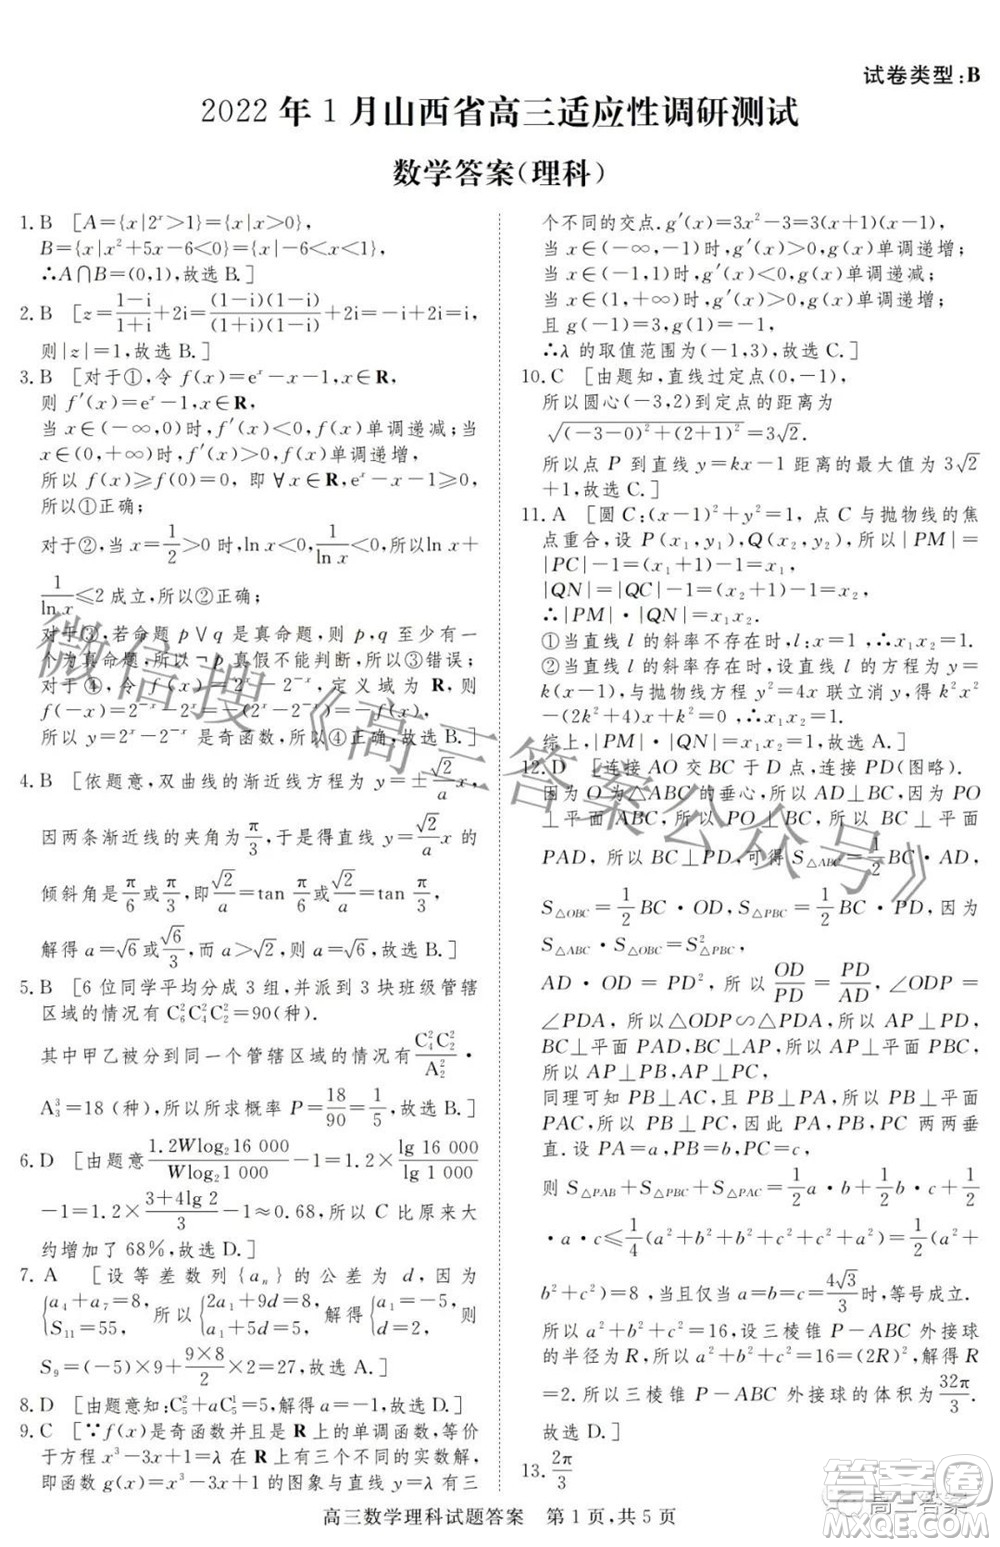 试卷类型:B
2022年1月山西省高三适应性调研测试
数学答案(理科)
1. B [A={x|2^x>1}={x|x>0},
B={x|x²+5x-6<0}={x|-6<x<1},
∴A∩B=(0,1),故选 B.]
2. B [z=(1-i)/(1+i)+2i=(1-i)(1-i)/((1+i)(1-i))+2i=-i+2i=i,
则|z|=1,故选 B.]
3. B [对于①,令 f(x)=e^x-x-1,x∈R,
则 f′(x)=e^x-1,x∈R,
当 x∈(-∞,0)时,f′(x)<0,f(x)单调递减;当
x∈(0,+∞)时,f′(x)>0,f(x)单调递增,
所以 f(x)≥f(0)=0,即 ∀x∈R,e^x-x-1≥0,
所以①正确;
对于②,当 x=1/2>0 时,ln x<0,1/ln x<0,所以ln x+
1/ln x≤2 成立,所以②正确;
对于③,若命题 p∨q 是真命题,则 p 与 q 至少有一
个为真命题,所以¬p 真假不能确定,所以③错误;
对于④,令 f(x)=2^x-2^-x,定义域为 R,则
f(-x)=2^-x-2^x=-(2^x-2^-x)=-f(x),
所以 y=2^x-2^-x 是奇函数,所以④正确.]
4. B [依题意,双曲线的渐近线方程为 y=±(√2/a)x.
因两条渐近线的夹角为π/3,于是得渐近线 y=(√2/a)x 的
倾斜角是π/6或π/3,即√2/a=tan π/6或√2/a=tan π/3,
解得 a=√6或√6/3,而 a>√2,则 a=√6,故选 B.]
5. B [6 位同学平均分成 3 组,并安排到 3 块班级管辖
区域的情况有 C₆²C₄²C₂²=90(种).
其中甲乙两位同学到同一个管辖区域的情况有 C₄²C₂²/A₂²·
A₃³=18 (种),所以所求概率 P=18/90=1/5,故选 B.]
6. D [由题意 1.2Wlog₂16 000/Wlog₂1 000-1=1.2×lg 16 000/lg 1 000
-1=1.2×(3+4lg 2)/3-1≈0.68,所以 C 比原来大
约增加了 68%,故选 D.]
7. A [设等差数列{aₙ}的公差为 d,因为
{a₄+a₇=8, S₁₁=55, 所以{2a₁+9d=8, a₁+5d=5, 解得{a₁=-5, d=2,
S₉=(-5)×9+(9×8/2)×2=27,故选 A.]
8. D [由题意知:C₅²+aC₅¹=5,解得 a=-1,故选 D.]
9. C [∵f(x)是奇函数并且是 R 上的增函数,等价
于方程 x³-3x+1=λ 在 R 上有三个不同的实数解,
即函数 g(x)=x³-3x+1 的图象与直线 y=λ 有三
个不同的交点. g′(x)=3x²-3=3(x+1)(x-1),
当 x∈(-∞,-1)时,g′(x)>0,g(x)单调递增;
当 x∈(-1,1)时,g′(x)<0,g(x)单调递减;
当 x∈(1,+∞)时,g′(x)>0,g(x)单调递增,
且 g(-1)=3,g(1)=-1,
∴λ 的取值范围为(-1,3),故选 C.]
10. C [由题知,直线过定点(0,-1),
所以圆心(-3,2)到定点的最大距离为
√((-3-0)²+(2+1)²)=3√2.
所以点 P 到直线 y=kx-1 距离的最大值为 3√2
+1,故选 C.]
11. A [圆 C:(x-1)²+y²=1,点 C 与抛物线的焦
点重合,设 P(x₁,y₁),Q(x₂,y₂),所以|PM|=
|PC|-|MC|=(x₁+1)-1=x₁,
|QN|=|QC|-|NC|=(x₂+1)-1=x₂,
∴|PM|·|QN|=x₁x₂.
①当直线 l 的斜率不存在时,l:x=1,∴x₁x₂=1;
②当直线 l 的斜率存在时,设直线 l 的方程为 y=
k(x-1),与抛物线方程 y²=4x 联立消 y,得 k²x²
-(2k²+4)x+k²=0,∴x₁x₂=1.
综上,|PM|·|QN|=1,故选 A.]
12. D [连接 AO 交 BC 于 D 点,连接 PD(图略).
因为 O 为△ABC 的垂心,所以 AD⊥BC,因为 PO
⊥平面 ABC,所以 PO⊥BC,所以 BC⊥平面
PAD,所以 BC⊥PD,可得 S△ABC=1/2 BC·AD,
S△OBC=1/2 BC·OD,S△PBC=1/2 BC·PD,因为
S△ABC·S△OBC=S²△PBC,所以
AD·OD=PD²,所以 OD/PD=PD/AD,∠ODP=
∠PDA,所以△ODP∽△PDA,所以 AP⊥PD,
BC⊥平面 PAD,BC⊥AP,所以 AP⊥平面 PBC,
所以 AP⊥PB,AP⊥PC,
同理可知 PB⊥AC,AP⊥PB,所以 PB⊥平面
PAC,所以 PB⊥PC,所以 PA,PB,PC 两两垂
直.设 PA=a,PB=b,PC=c,
则 S△PAB+S△PBC+S△PAC=1/2 a·b+1/2 b·c+1/2
·a·c≤1/4(a²+b²+b²+c²+a²+c²)=1/2(a²+
b²+c²)=8,当且仅当 a=b=c=4√3/3时等号成立.
所以 a²+b²+c²=16,设三棱锥 P-ABC 外接球
的半径为 R,所以 a²+b²+c²=16=(2R)²,解得 R
=2.所以三棱锥 P-ABC 外接球的体积为32π/3,
故选 D.]
13. 2π/3
高三数学理科试题答案 第 1 页,共 5 页
微信搜《高三答案公众号》
答案圈
高三答案
MXQE.COM